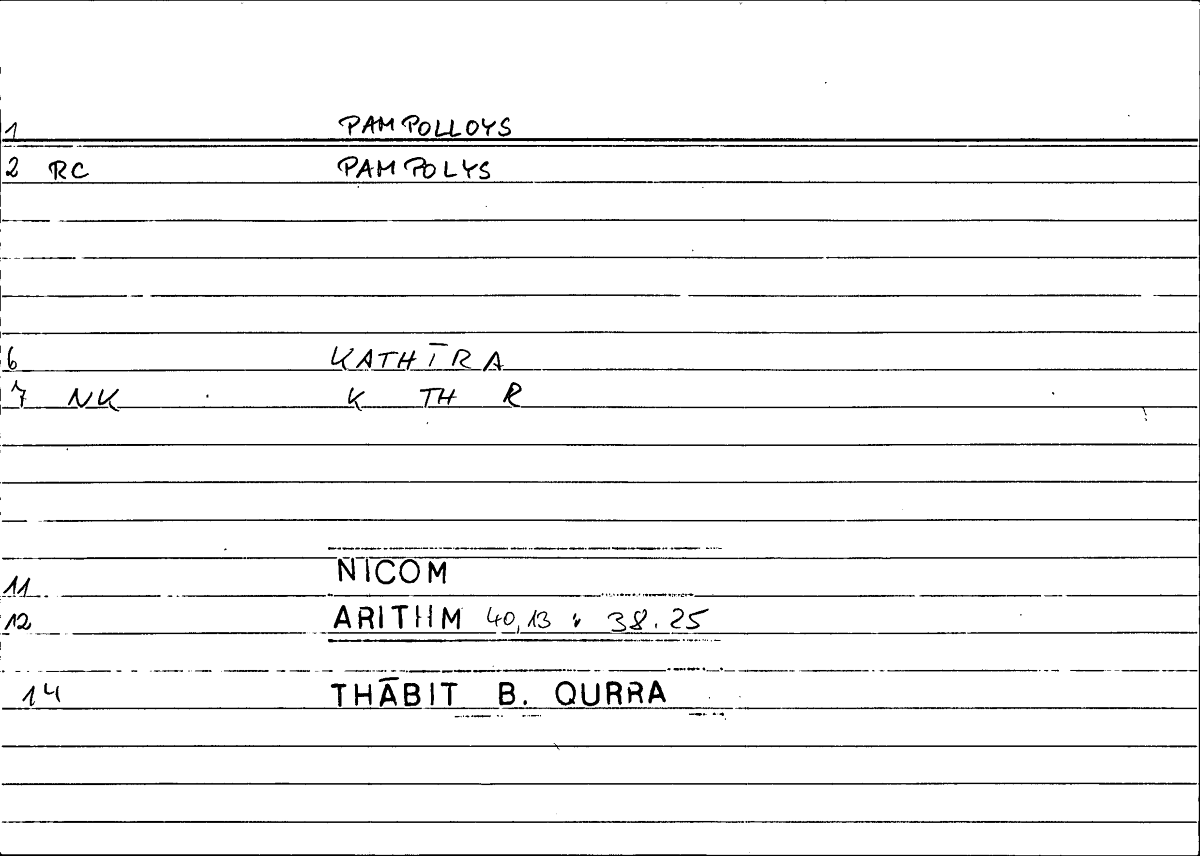 1 PAMPOLLOYS
2 RC PAMPOLYS
6 KATHĪRA
7 NK K TH R
11 NICOM
12 ARITHM 40,13 : 38.25
14 THĀBIT B. QURRA